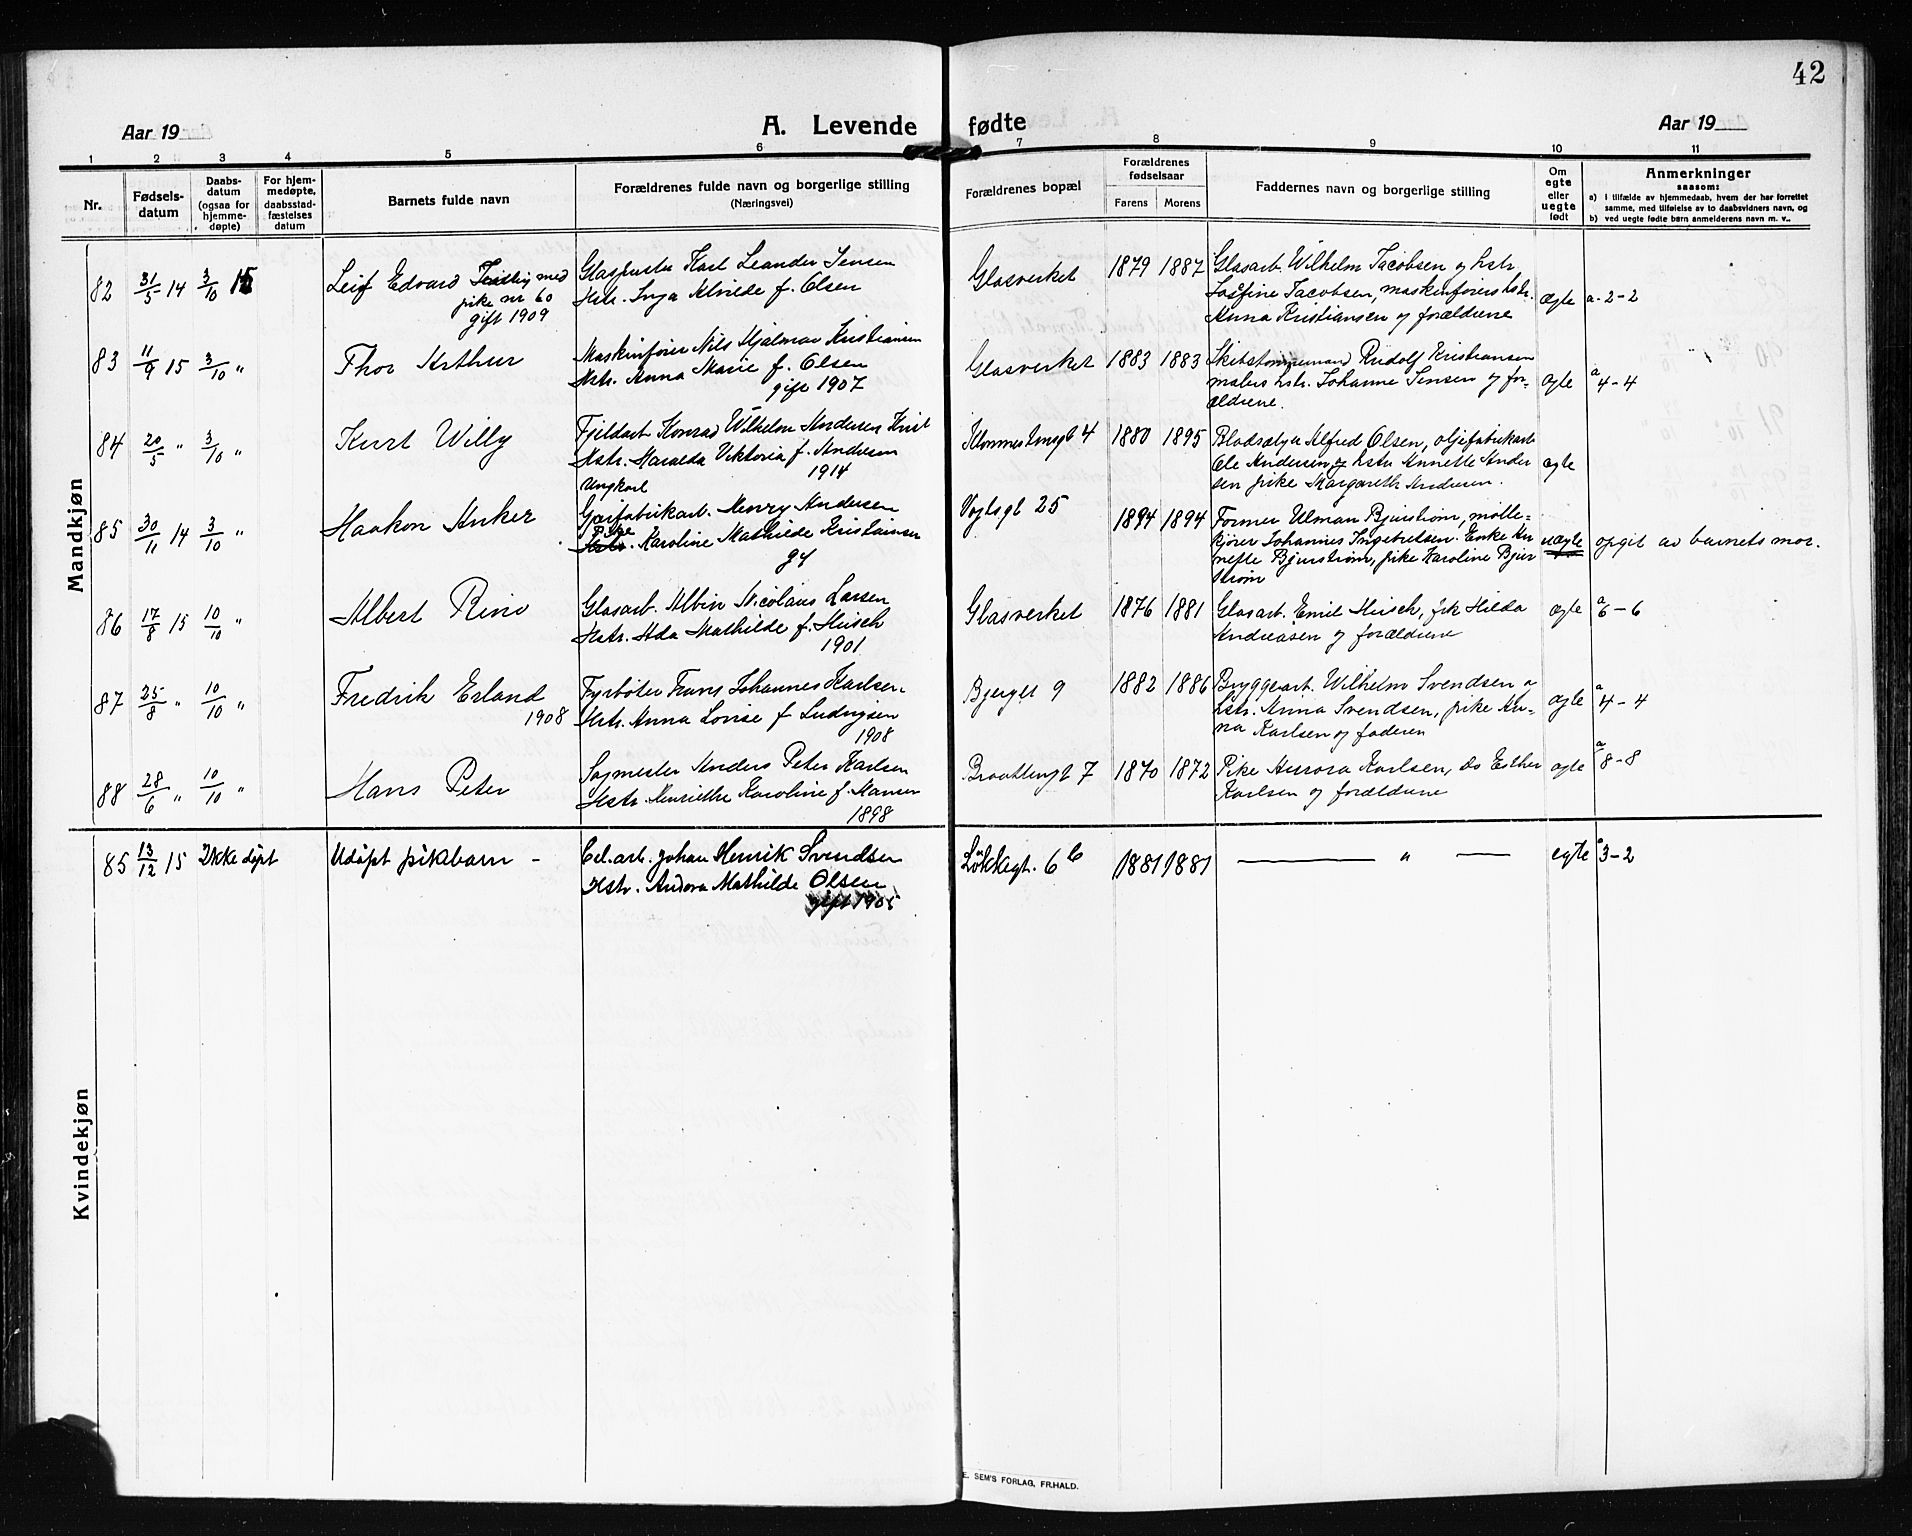 42
Aar 19
A. Levende fødte
Aar 19
1 2 3 4 5 6 7 8 9 10 11
Nr.
Fødsels-
datum
Daabs-
datum
(ogsaa for
hjemme-
døpte)
For hjem-
medøpte,
daabsstad-
fæstelses
datum
Barnets fulde navn
Forældrenes fulde navn og borgerlige stilling
(Næringsvei)
Forældrenes bopæl
Forældrenes
fødselsaar
Farens Morens
Faddernes navn og borgerlige stilling
Om
egte
eller
uegte
født
Anmerkninger
saasom:
a) I tilfælde av hjemmedaab, hvem der har forrettet
samme, med tilføielse av to daabsvidners navn, og
b) ved uegte fødte børn anmelderens navn m. v..
Mandkjøn
82 31/5 14 3/10 15 Leif Edvard Tvilling med
pike nr 60
gift 1909
Glaspuster Karl Leander Jensen
Hstr. Inga Alvilde f. Olsen
Glasverket 1879 1887
Glasarb. Wilhelm Jacobsen og hstr.
Josefine Jacobsen, maskinførers hstr.
Anna Kristiansen og forældrene
ægte a. 2-2
83 11/9 15 3/10 " Thor Arthur
Maskinfører Nils Hjalmar Kristiansen
Hstr. Anna Marie f. Olsen
gift 1907
Glasverket 1883 1883
Skibstømmermand Rudolf Kristiansen
malers hstr. Johanne Jensen og for-
ældrene.
ægte a 4-4
84 20/5 " 3/10 " Kurt Willy
Fjeldarb. Konrad Wilhelm Andersen
Hstr. Haralda Viktoria f. Andersen
1914
1880 1895
Alfred Olsen, oljefabrikarb
Ole Andersen og hstr. Annette Ander
sen pike Margareth Andersen.
ægte
85 30/11 14 3/10 " Haakon Anker
Ungkarl
Henry Andersen
Pike
Hstr. Karoline Mathilde Kristiansen
94
Vogtsgt 25 1894 1894
Former Ulman Bjurstrøm, mølle-
kjører Johannes Ingebretsen. Enke An
nette Bjurstrøm, pike Karoline Bjur
strøm
uægte opgit av barnets mor.
86 17/8 15 10/10 " Albert Rino
Glasarb. Albin Nicolaus Larsen
Hstr. Ada Mathilde f. Hirsch
1901
Glasverket 1876 1881
Glasarb. Emil Hirsch, frk Hilda
Andreasen og forældrene
ægte a 6-6
87 25/8 " 10/10 " Fredrik Erland
1908
Fyrbøter Frans Johannes Karlsen
Hstr. Anna Lovise f Ludvigsen
1908
Bjerget 9 1882 1886
Bryggearb. Wilhelm Svendsen og
hstr. Anna Svendsen, pike An-
na Karlsen og faderen
ægte a 4-4
88 28/6 " 10/10 " Hans Peter
Sagmester Anders Peter Karlsen
Hstr. Henriette Karoline f. Hansen
1898
Braatengt 7 1870 1872
Pike Aurora Karlsen, do Esther
Karlsen og forældrene
ægte a 8-8
Kvindekjøn
85 13/12 15 Ikke døpt Udøpt pikebarn -
Cel.arb. Johan Henrik Svendsen
Hstr. Andora Mathilde Olsen
gift 1905
Løkkegt. 6b 1881 1881 — " — egte a 3-2
E. SEM'S FORLAG, FR.HALD.